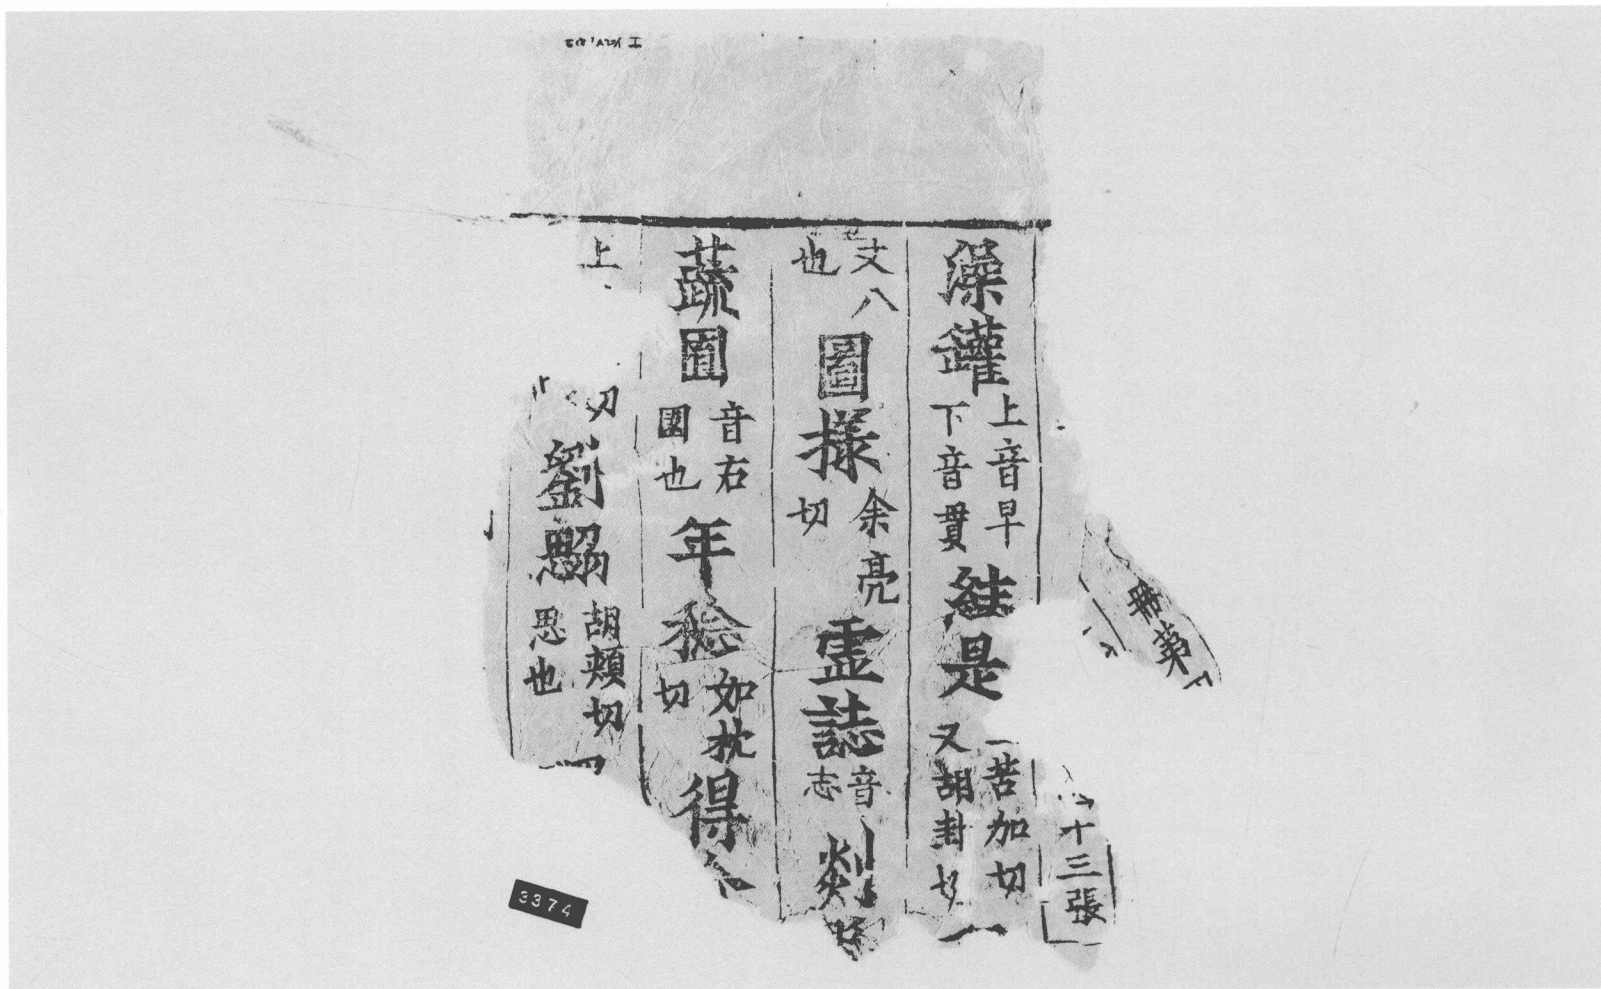 册第
十三張
澡鑵上音早下音貫絓是一苦加切又胡卦切
丈八也圖様余亮切䨩誌音志剡
蔬圃音右園也年稔如枕切得
上切劉勰胡頰切思也
3374